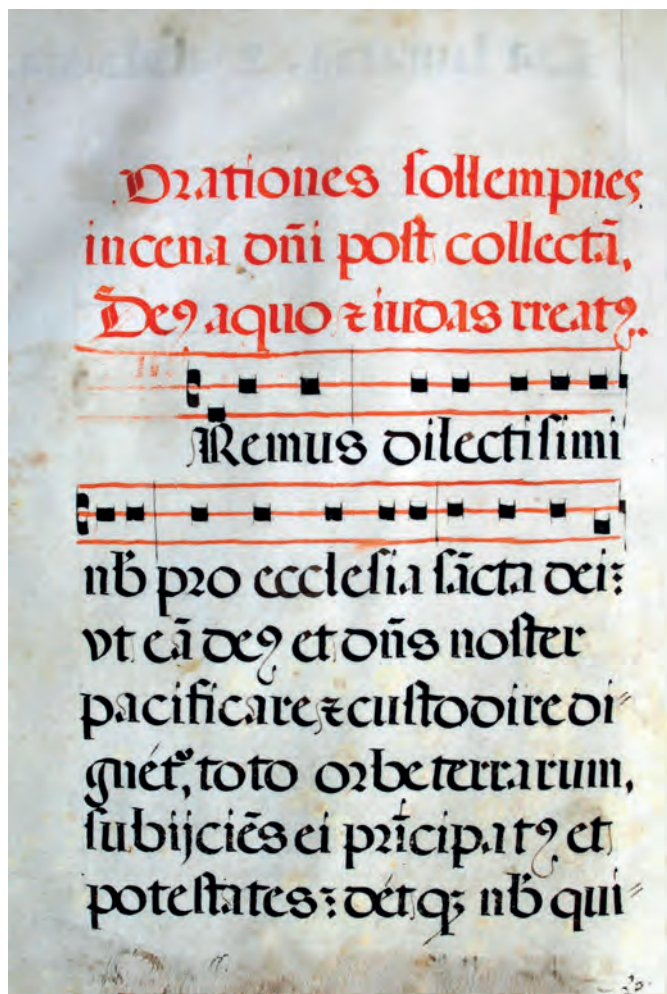 Orationes sollempnes
in cena dn̄i post collectā,
Deꝯ a quo ⁊ iudas rreatꝯ.
Remus dilectisimi
nb̄ pro ecclesia sācta dei:
vt eā deꝯ et dn̄s noster
pacificare, ⁊ custodire di=
gnét᷑, toto orbe terrarum,
subijciēs ei prīcipatꝯ et
potestates: détqꝫ nb̄ qui=